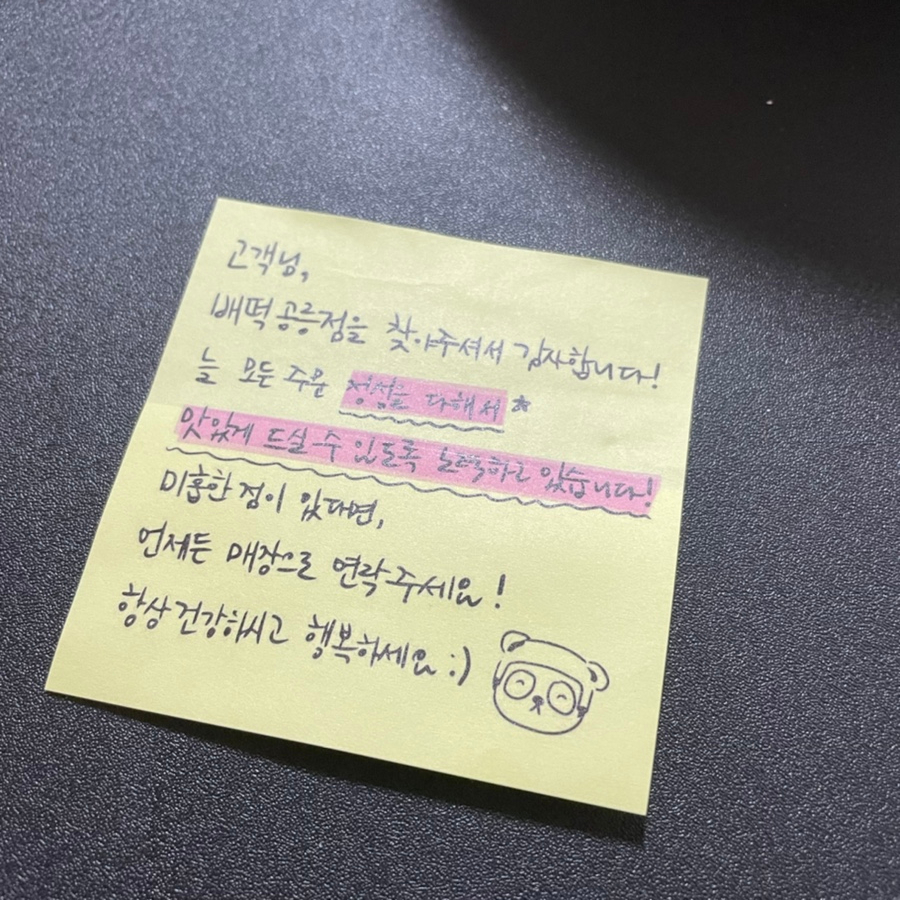 고객님,
배떡 공릉점을 찾아주셔서 감사합니다!
늘 모든 주문 정성을 다해서
맛있게 드실 수 있도록 노력하고 있습니다!
미흡한 점이 있다면,
언제든 매장으로 연락주세요!
항상 건강하시고 행복하세요 :)